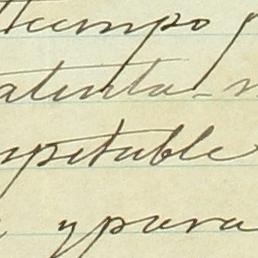 tiempo
atenta-
spetable
y para